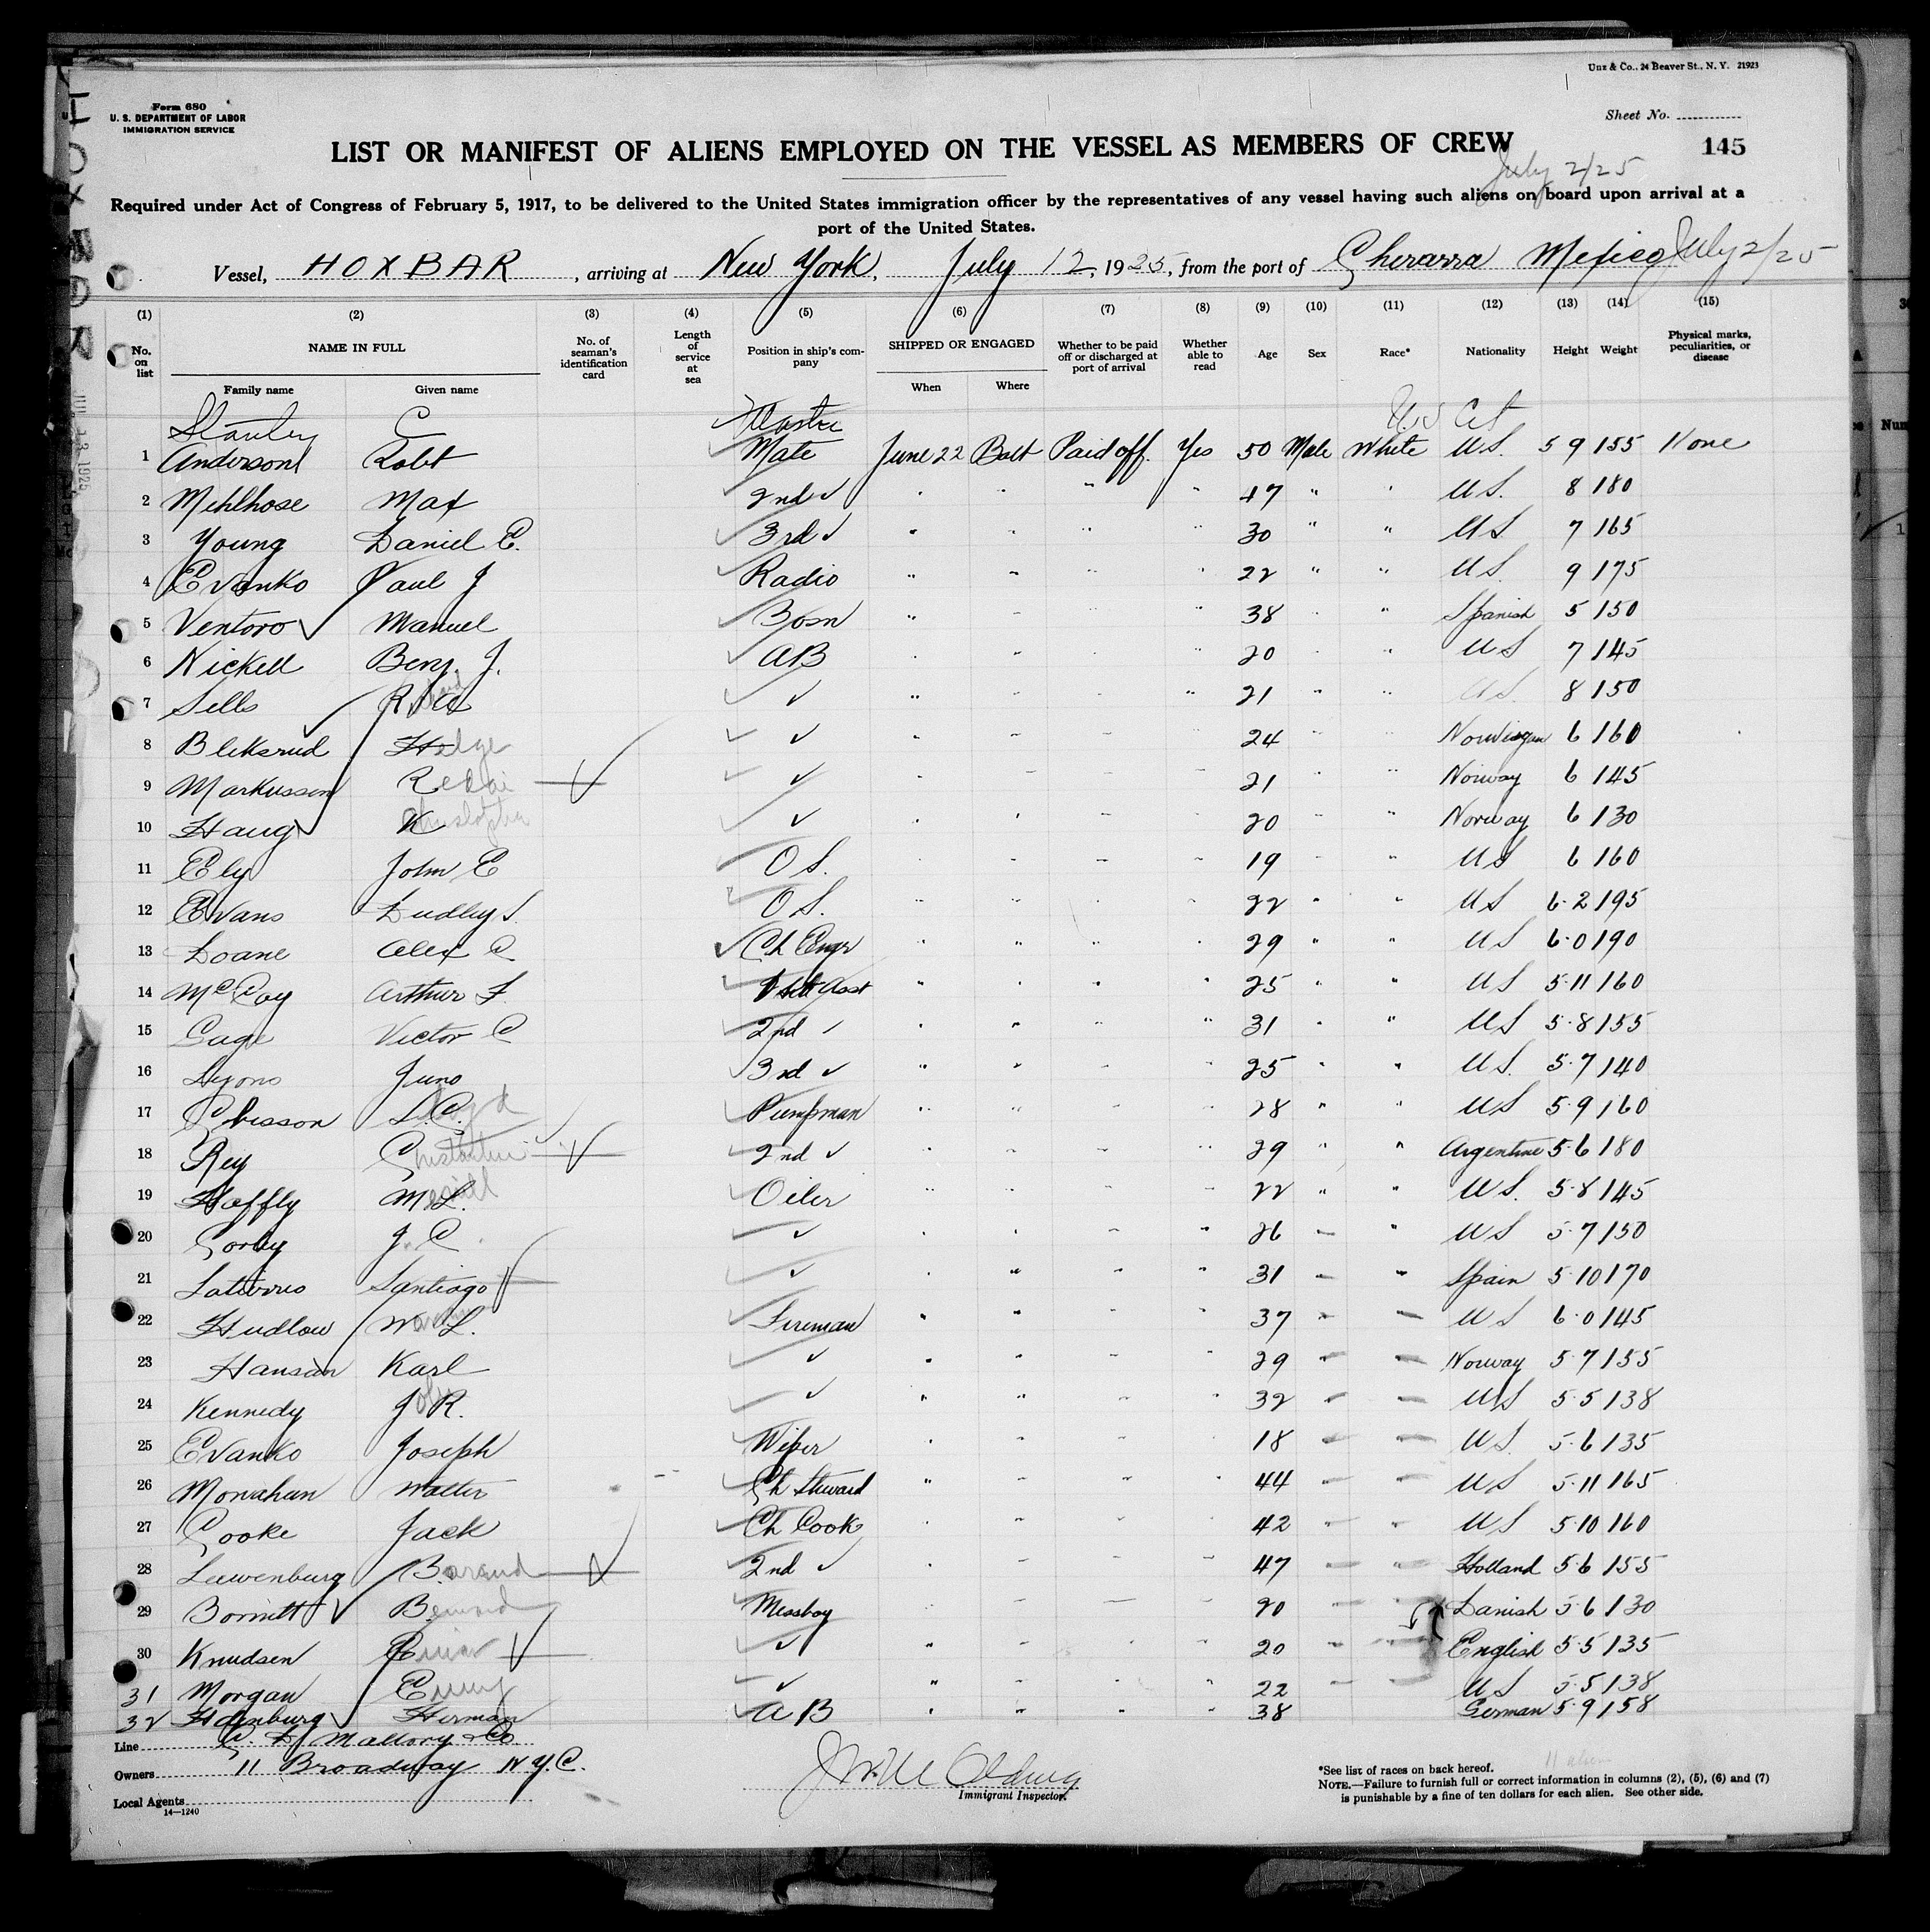 Unz & Co., 24 Beaver St., N. Y. 21923
Form 680
U. S. DEPARTMENT OF LABOR
IMMIGRATION SERVICE
Sheet No.
LIST OR MANIFEST OF ALIENS EMPLOYED ON THE VESSEL AS MEMBERS OF CREW
145
July 2/25
Required under Act of Congress of February 5, 1917, to be delivered to the United States immigration officer by the representatives of any vessel having such aliens on board upon arrival at a
port of the United States.
Vessel, HOXBAR, arriving at New York, July 12, 1925, from the port of Mexico July 2/25
(1) (2) (3) (4) (5) (6) (7) (8) (9) (10) (11) (12) (13) (14) (15)
No. on list NAME IN FULL No. of seaman's identification card Length of service at sea Position in ship's company SHIPPED OR ENGAGED Whether to be paid off or discharged at port of arrival Whether able to read Age Sex Race* Nationality Height Weight Physical marks, peculiarities, or disease
Family name Given name When Where
Stanley C Master U.S Cit
1 Anderson Robt Mate June 22 Balt Paid off. Yes 50 Male White U.S. 5 9 155 None
2 Mehlhose Max 2nd ✓ " " " " 47 " " U.S. 8 180
3 Young Daniel E. 3rd ✓ " " " " 30 " " U.S 7 165
4 Evanko Paul J Radio " " " " 22 " " U.S. 9 175
5 Ventoro Manuel Bosn " " " " 38 " " Spanish 5 150
6 Nickell Benj. J. AB " " " " 20 " " U.S 7 145
7 Sells R ✓ " " " " 21 " " U.S. 8 150
8 Bleksrud ✓ " " " " 24 " " Norwegan 6 160
9 Markussen ✓ " " " " 21 " " Norway 6 145
10 Haug K ✓ " " " " 20 " " Norway 6 130
11 Ely John E O S. " " " " 19 " " U.S 6 160
12 Evans Dudley S. O S. " " " " 22 " " U.S 6-2 195
13 Doane Alex C Ch Engr " " " " 29 " " U.S 6-0 190
14 McCoy Arthur F. 1st Asst " " " " 25 " " U.S 5-11 160
15 Gage Victor C 2nd ✓ " " " " 31 " " U.S 5-8 155
16 Lyons Juno 3rd ✓ " " " " 25 " " U.S. 5-7 140
17 Chisson L.C. Pumpman " " " " 28 " " U.S 5-9 160
18 Rey C 2nd ✓ " " " " 29 " " Argentine 5-6 180
19 Haffly M L. Oiler " " " " 22 " " U.S. 5-8 145
20 Corby J. C. ✓ " " " " 26 " " U.S 5-7 150
21 Santiago ✓ " " " " 31 " " Spain 5-10 170
22 Hudlow W L. Fireman " " " " 37 " " U S 6-0 145
23 Hansan Karl ✓ " " " " 29 " " Norway 5-7 155
24 Kennedy J R. ✓ " " " " 32 " " U.S 5-5 138
25 Evanko Joseph Wiper " " " " 18 " " U.S. 5-6 135
26 Monahan Walter Ch Steward " " " " 44 " " U S 5-11 165
27 Cooke Jack Ch Cook " " " " 42 " " U S 5-10 160
28 Leuwenburg Barend 2nd ✓ " " " " 47 " " Holland 5 6 155
29 Bornett Bernard Messboy " " " " 20 " " Danish 5-6 130
30 Knudsen ✓ " " " " 20 " " English 5-5 135
31 Morgan ✓ " " " " 22 " " U.S 5-5 138
32 Herman AB " " " " 38 German 5-9 158
Line C. D. Mallory & Co.
Owners 11 Broadway N.Y.C.
Local Agents
14—1240
Immigrant Inspector.
*See list of races on back hereof.
NOTE.—Failure to furnish full or correct information in columns (2), (5), (6) and (7)
is punishable by a fine of ten dollars for each alien. See other side.